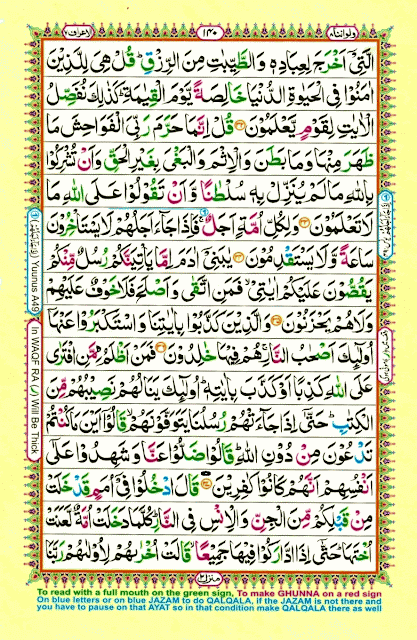 ولواننآ ٨
١٤٠
الاعراف ٧
الَّتِیْۤ اَخْرَجَ لِعِبَادِهٖ وَالطَّیِّبٰتِ مِنَ الرِّزْقِ ؕ قُلْ هِیَ لِلَّذِیْنَ
اٰمَنُوْا فِی الْحَیٰوةِ الدُّنْیَا خَالِصَةً یَّوْمَ الْقِیٰمَةِ ؕ كَذٰلِكَ نُفَصِّلُ
الْاٰیٰتِ لِقَوْمٍ یَّعْلَمُوْنَ ﴿۳۲﴾ قُلْ اِنَّمَا حَرَّمَ رَبِّیَ الْفَوَاحِشَ مَا
ظَهَرَ مِنْهَا وَمَا بَطَنَ وَالْاِثْمَ وَالْبَغْیَ بِغَیْرِ الْحَقِّ وَاَنْ تُشْرِكُوْا
بِاللّٰهِ مَا لَمْ یُنَزِّلْ بِهٖ سُلْطٰنًا وَّاَنْ تَقُوْلُوْا عَلَی اللّٰهِ مَا
لَا تَعْلَمُوْنَ ﴿۳۳﴾ وَلِكُلِّ اُمَّةٍ اَجَلٌ ۚ فَاِذَا جَآءَ اَجَلُهُمْ لَا یَسْتَاْخِرُوْنَ
سَاعَةً وَّلَا یَسْتَقْدِمُوْنَ ﴿۳۴﴾ یٰبَنِیْۤ اٰدَمَ اِمَّا یَاْتِیَنَّكُمْ رُسُلٌ مِّنْكُمْ
یَقُصُّوْنَ عَلَیْكُمْ اٰیٰتِیْ ۙ فَمَنِ اتَّقٰی وَاَصْلَحَ فَلَا خَوْفٌ عَلَیْهِمْ
وَلَا هُمْ یَحْزَنُوْنَ ﴿۳۵﴾ وَالَّذِیْنَ كَذَّبُوْا بِاٰیٰتِنَا وَاسْتَكْبَرُوْا عَنْهَاۤ
اُولٰٓئِكَ اَصْحٰبُ النَّارِ ۚ هُمْ فِیْهَا خٰلِدُوْنَ ﴿۳۶﴾ فَمَنْ اَظْلَمُ مِمَّنِ افْتَرٰی
عَلَی اللّٰهِ كَذِبًا اَوْ كَذَّبَ بِاٰیٰتِهٖ ؕ اُولٰٓئِكَ یَنَالُهُمْ نَصِیْبُهُمْ مِّنَ
الْكِتٰبِ ؕ حَتّٰۤی اِذَا جَآءَتْهُمْ رُسُلُنَا یَتَوَفَّوْنَهُمْ ۙ قَالُوْۤا اَیْنَ مَا كُنْتُمْ
تَدْعُوْنَ مِنْ دُوْنِ اللّٰهِ ؕ قَالُوْا ضَلُّوْا عَنَّا وَشَهِدُوْا عَلٰۤی
اَنْفُسِهِمْ اَنَّهُمْ كَانُوْا كٰفِرِیْنَ ﴿۳۷﴾ قَالَ ادْخُلُوْا فِیْۤ اُمَمٍ قَدْ خَلَتْ
مِنْ قَبْلِكُمْ مِّنَ الْجِنِّ وَالْاِنْسِ فِی النَّارِ ؕ كُلَّمَا دَخَلَتْ اُمَّةٌ لَّعَنَتْ
اُخْتَهَا ؕ حَتّٰۤی اِذَا ادَّارَكُوْا فِیْهَا جَمِیْعًا ۙ قَالَتْ اُخْرٰىهُمْ لِاُوْلٰىهُمْ رَبَّنَا
منزل ٢
Yuunus A49
In WAQF RA (ر) Will Be Thick
To read with a full mouth on the green sign, To make GHUNNA on a red sign
On blue letters or on blue JAZAM to do QALQALA, if the JAZAM is not there and
you have to pause on that AYAT so in that condition make QALQALA there as well